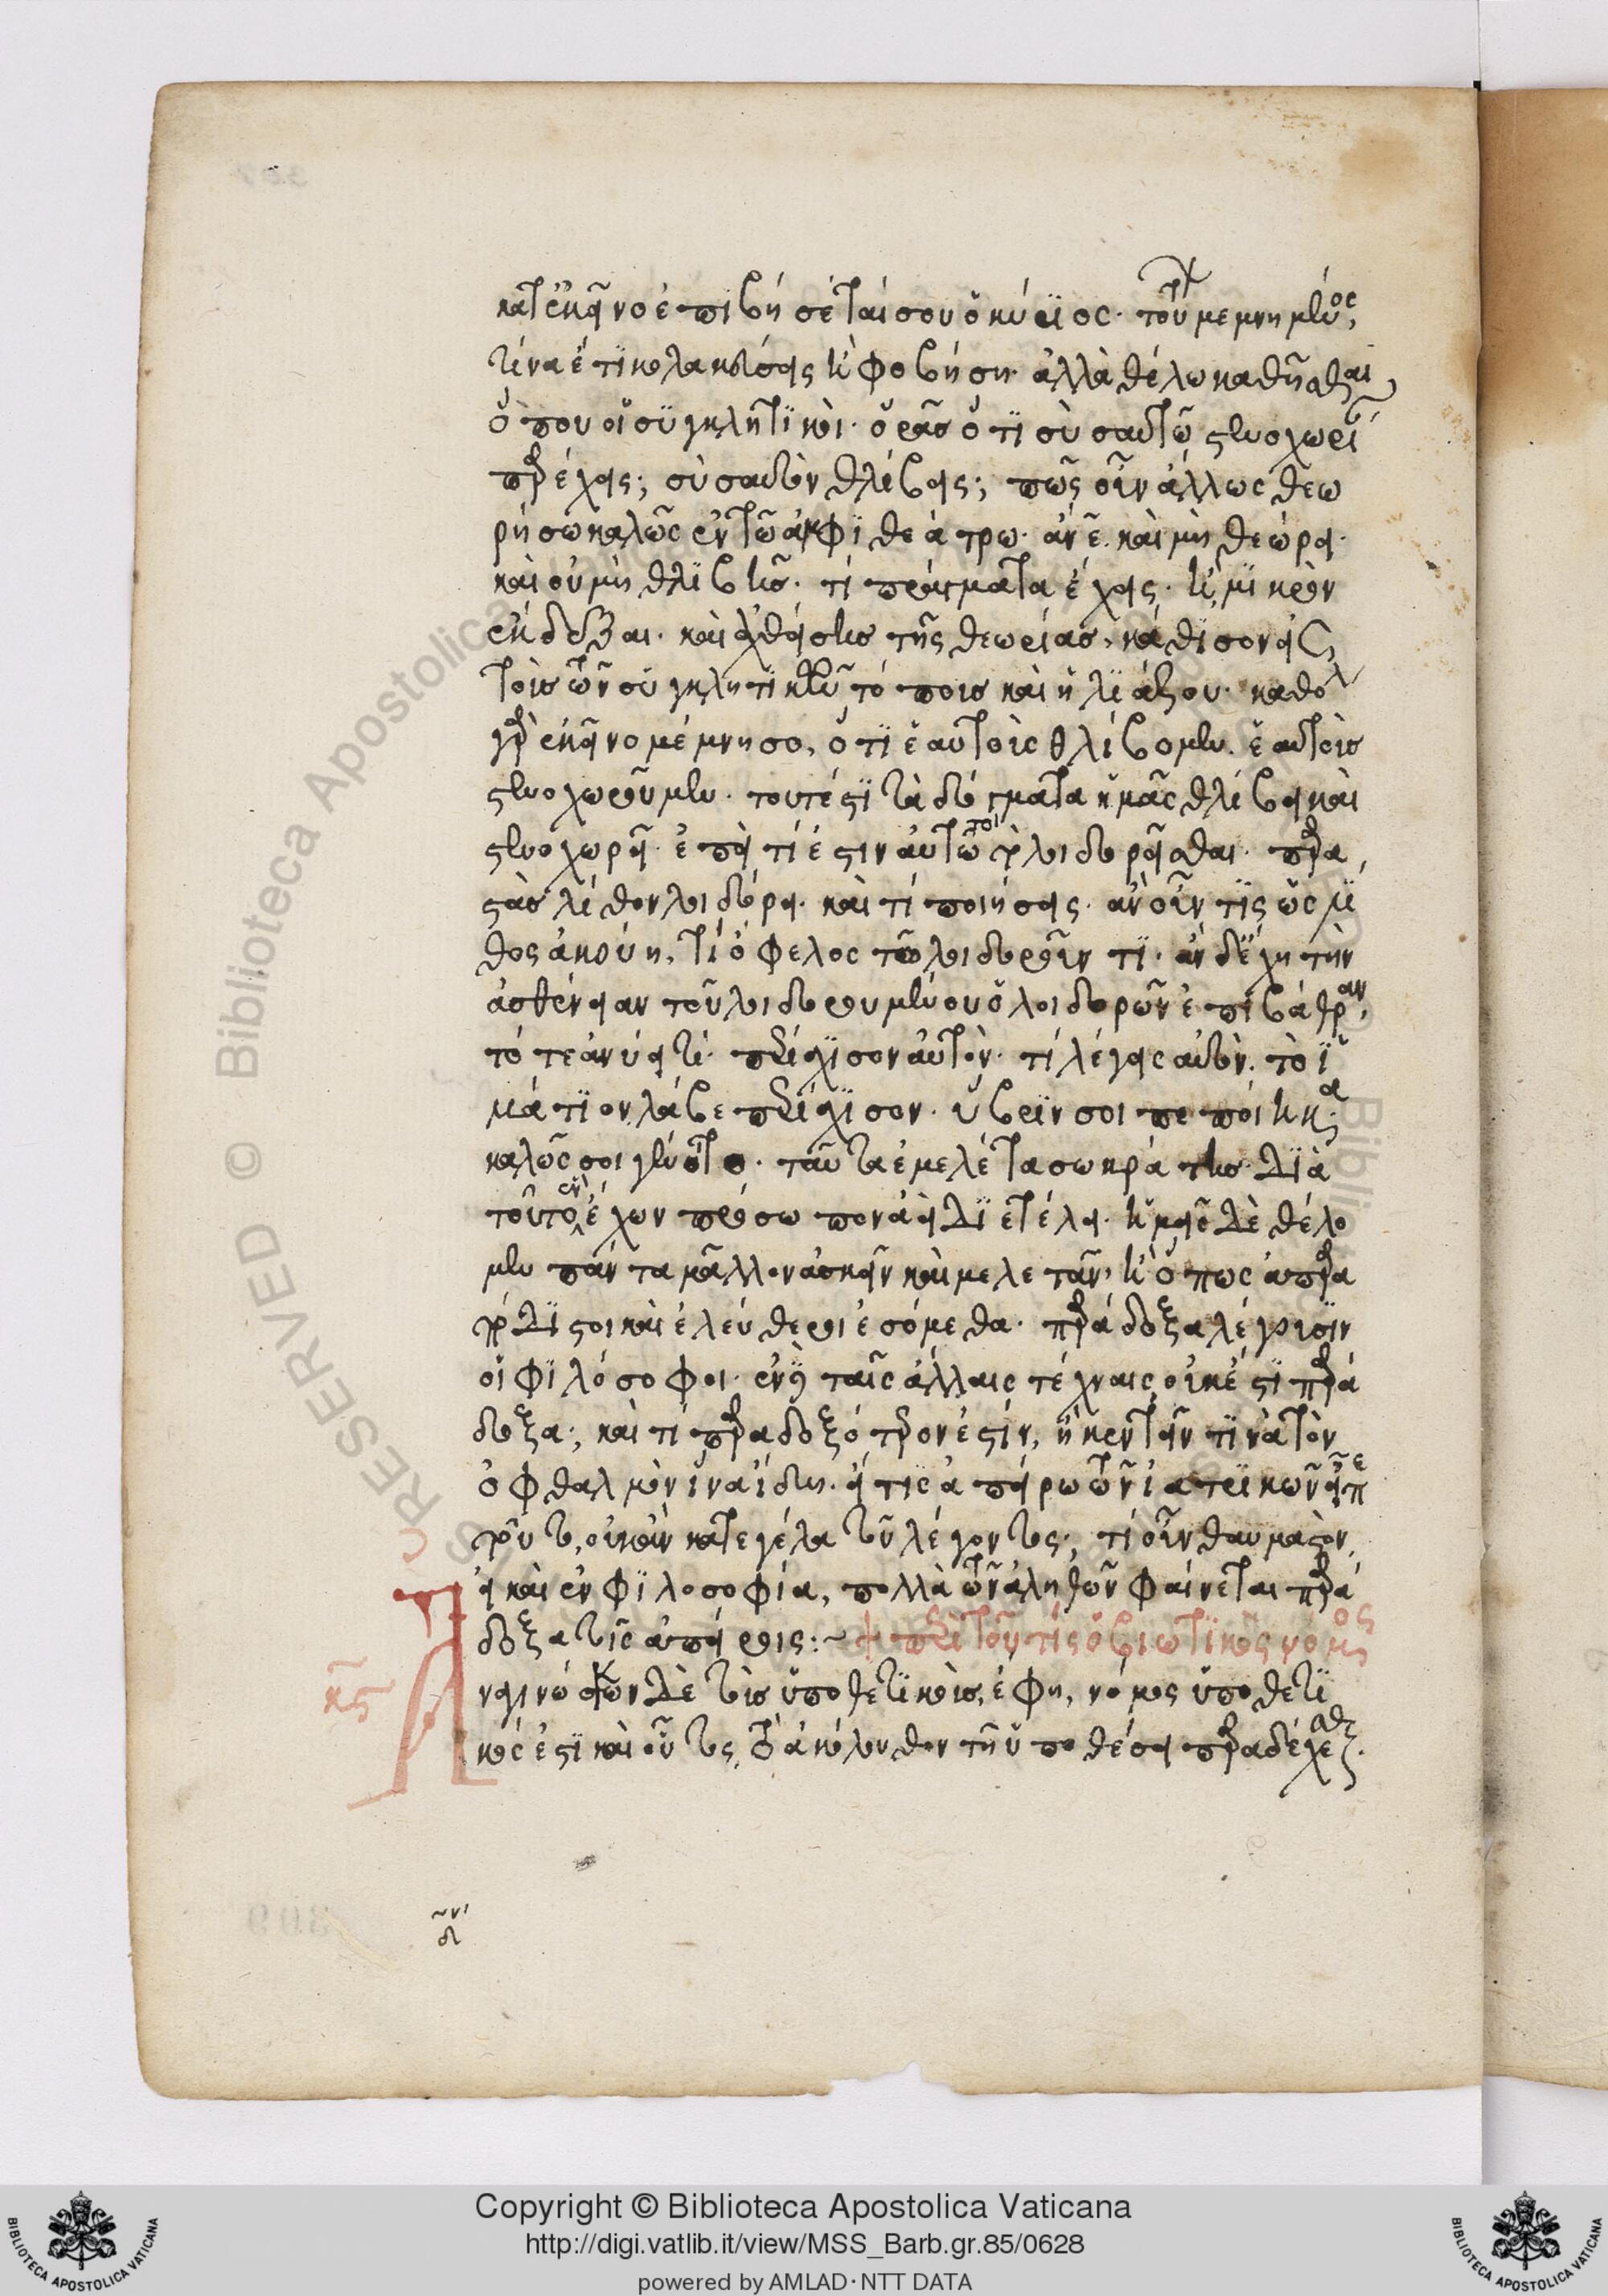 κατ' ἐκεῖνο ἐπιβήσεταί σου ὁ κύριος. τούτ(ων) μεμνημένος,
τίνα ἔτι κολακεύσεις ἢ φοβήσῃ. ἀλλὰ θέλω καθῆσθαι
ὅπου οἱ συγκλητικοὶ. ὁρᾶς ὅτι σὺ σαυτῶ στενοχωρί(αν)
παρέχεις; σὺ σαυτὸν θλίβεις; πῶς οὖν ἄλλως θεω
ρήσω καλῶς ἐν τῶ ἀμφιθεάτρω. ἄν(θρωπ)ε. καὶ μὴ θεώρει.
καὶ οὐ μὴ θλιβῆς. τί πράγματα ἔχεις. ἢ μικρὸν
ἔκδεξαι. καὶ ἀχθείσης τῆς θεωρίας, κάθισον εἰς
τοὺς τῶν συγκλητικῶν τόπους καὶ ἡλιάζου. καθόλ(ου)
γὰρ ἐκεῖνο μέμνησο, ὅτι ἑαυτοὺς θλίβομεν. ἑαυτοὺς
στενοχωροῦμεν. τουτέστι τὰ δόγματα ἡμᾶς θλίβει καὶ
στενοχωρεῖ. ἐπεὶ τί ἐστιν αὐτὸ τὸ λοιδορεῖσθαι. παρα
στὰς λίθον λοιδόρει. καὶ τί ποιήσεις. ἂν οὖν τις ὡς λί
θος ἀκούῃ, τί ὄφελος τῶ λοιδοροῦντι. ἂν δ' ἔχῃ τὴν
ἀσθένειαν τοῦ λοιδορουμένου ὁ λοιδορῶν ἐπιβάθραν,
τότε ἀνύει τί. περίσχισον αὐτόν. τί λέγεις αὐτὸν. τὸ ἱ
μάτιον λάβε περίσχισον. ὕβριν σοι πεποίηκα.
καλῶς σοι γένοιτο. ταῦτα ἐμελέτα σωκράτης. διὰ
τοῦτο ἓν ἔχων πρόσωπον ἀεὶ διετέλει. ἡμεῖς δὲ θέλο
μεν πάντα μᾶλλον ἀσκεῖν καὶ μελετᾶν, ἢ ὅπως ἀπαρα
πόδιστοι καὶ ἐλεύθεροι ἐσόμεθα. παράδοξα λέγουσιν
οἱ φιλόσοφοι. ἐν δὲ ταῖς ἄλλαις τέχναις οὐκ ἔστι παρά
δοξα; καὶ τί παραδοξότερον ἐστίν, ἢ κεντεῖν τινὰ τὸν
ὀφθαλμὸν ἵνα ἴδῃ. εἴ τις ἀπείρω τῶν ἰατρικῶν εἶπε
τοῦτο, οὐκ ἂν κατεγέλα τοῦ λέγοντος; τί οὖν θαυμαστὸν,
εἰ καὶ ἐν φιλοσοφία, πολλὰ τῶν ἀληθῶν φαίνεται παρά
δοξα τοῖς ἀπείροις:~ + περὶ τοῦ τίς ὁ βιωτικὸς νόμος
κς Ἀναγινώσκων δὲ τοὺς ὑποθετικοὺς, ἔφη, νόμος ὑποθετι
κός ἐστι καὶ οὗτος, τὸ ἀκόλουθον τῆ ὑποθέσει παραδέχεσθαι.
Copyright © Biblioteca Apostolica Vaticana
http://digi.vatlib.it/view/MSS_Barb.gr.85/0628
powered by AMLAD · NTT DATA